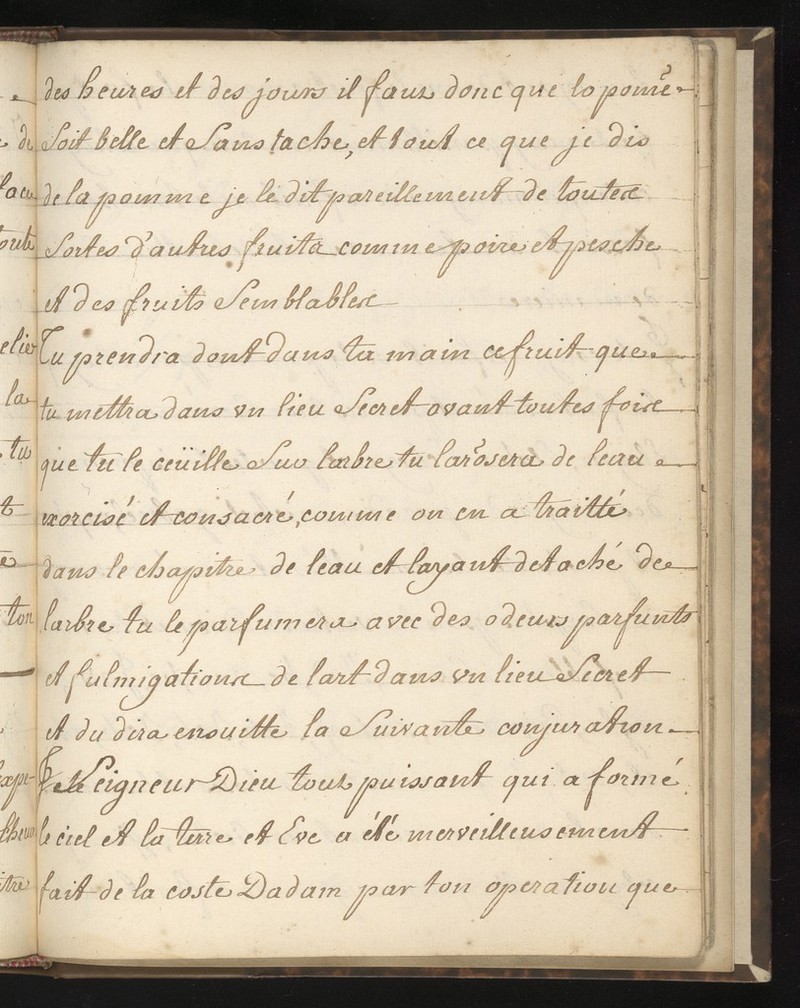 des heures et des jours il faut donc que la pomē
soit belle et sans tache, et tout ce que je dis
de la pomme je le dit pareillement de toutes
sortes d'autres fruits comme poire et pesche
et des fruits semblables
Tu prendra dont dans ta main ce fruit que
tu mettra dans vn lieu secret avant toutes fois
que tu le ceüille sur larbre tu larosera de leau
exorcisé et consacré, comme on en a traitté
dans le chapitre de leau et layant detaché de
larbre tu le parfumera avec des odeurs parfunts
et fulmigations de lart dans vn lieu secret
et du dira ensuitte la suivante conjuration
Seigneur Dieu tout puissant qui a formé
le ciel et la terre et Eve a été merveilleusement
fait de la coste Dadam par ton operation que